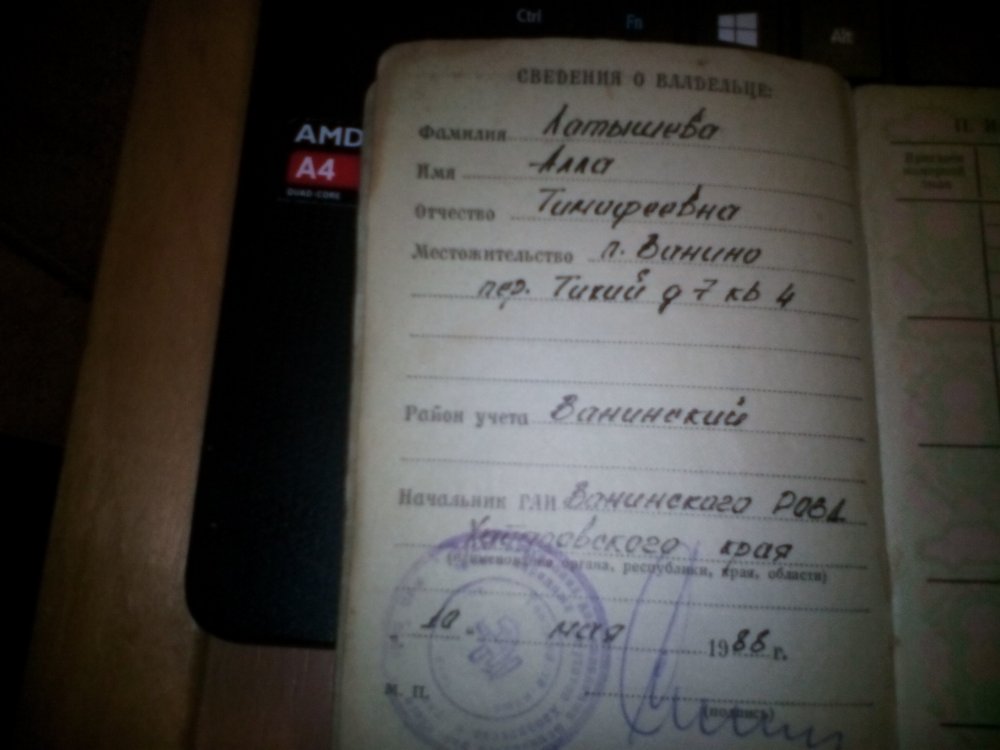 Ctrl
Fn
Alt
AMD
A4
QUAD-CORE
СВЕДЕНИЯ О ВЛАДЕЛЬЦЕ:
Фамилия Латышева
Имя Алла
Отчество Тимофеевна
Местожительство п. Ванино
пер. Тихий д 7 кв 4
Район учета Ванинский
Начальник ГАИ Ванинского РОВД
Хабаровского края
(наименование органа, республики, края, области)
мая 1988 г.
М. П.
(подпись)